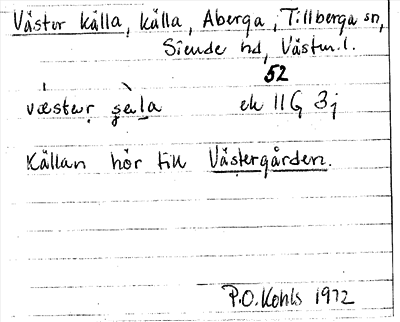 Väster källa, källa, Aberga, Tillberga sn,
Siende hd, Västm.l.
52
væstər ça̱la ek 11G 3j
Källan hör till Västergården.
P.O. Kohls 1972